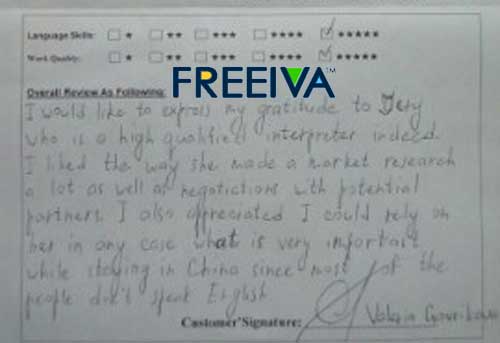 Language Skills: ☐ ★ ☐ ★★ ☐ ★★★ ☐ ★★★★ ☑ ★★★★★
Work Quality: ☐ ★ ☐ ★★ ☐ ★★★ ☐ ★★★★ ☑ ★★★★★
Overall Review As Following: FREEIVA™
I would like to express my gratitude to
who is a high qualified interpreter indeed.
I liked the way she made a market research
a lot as well as negotictions with potential
partners. I also appreciated I could rely on
her in any case what is very important
while staying in China since most of the
people don't speak English
Customer'Signature: Valeria